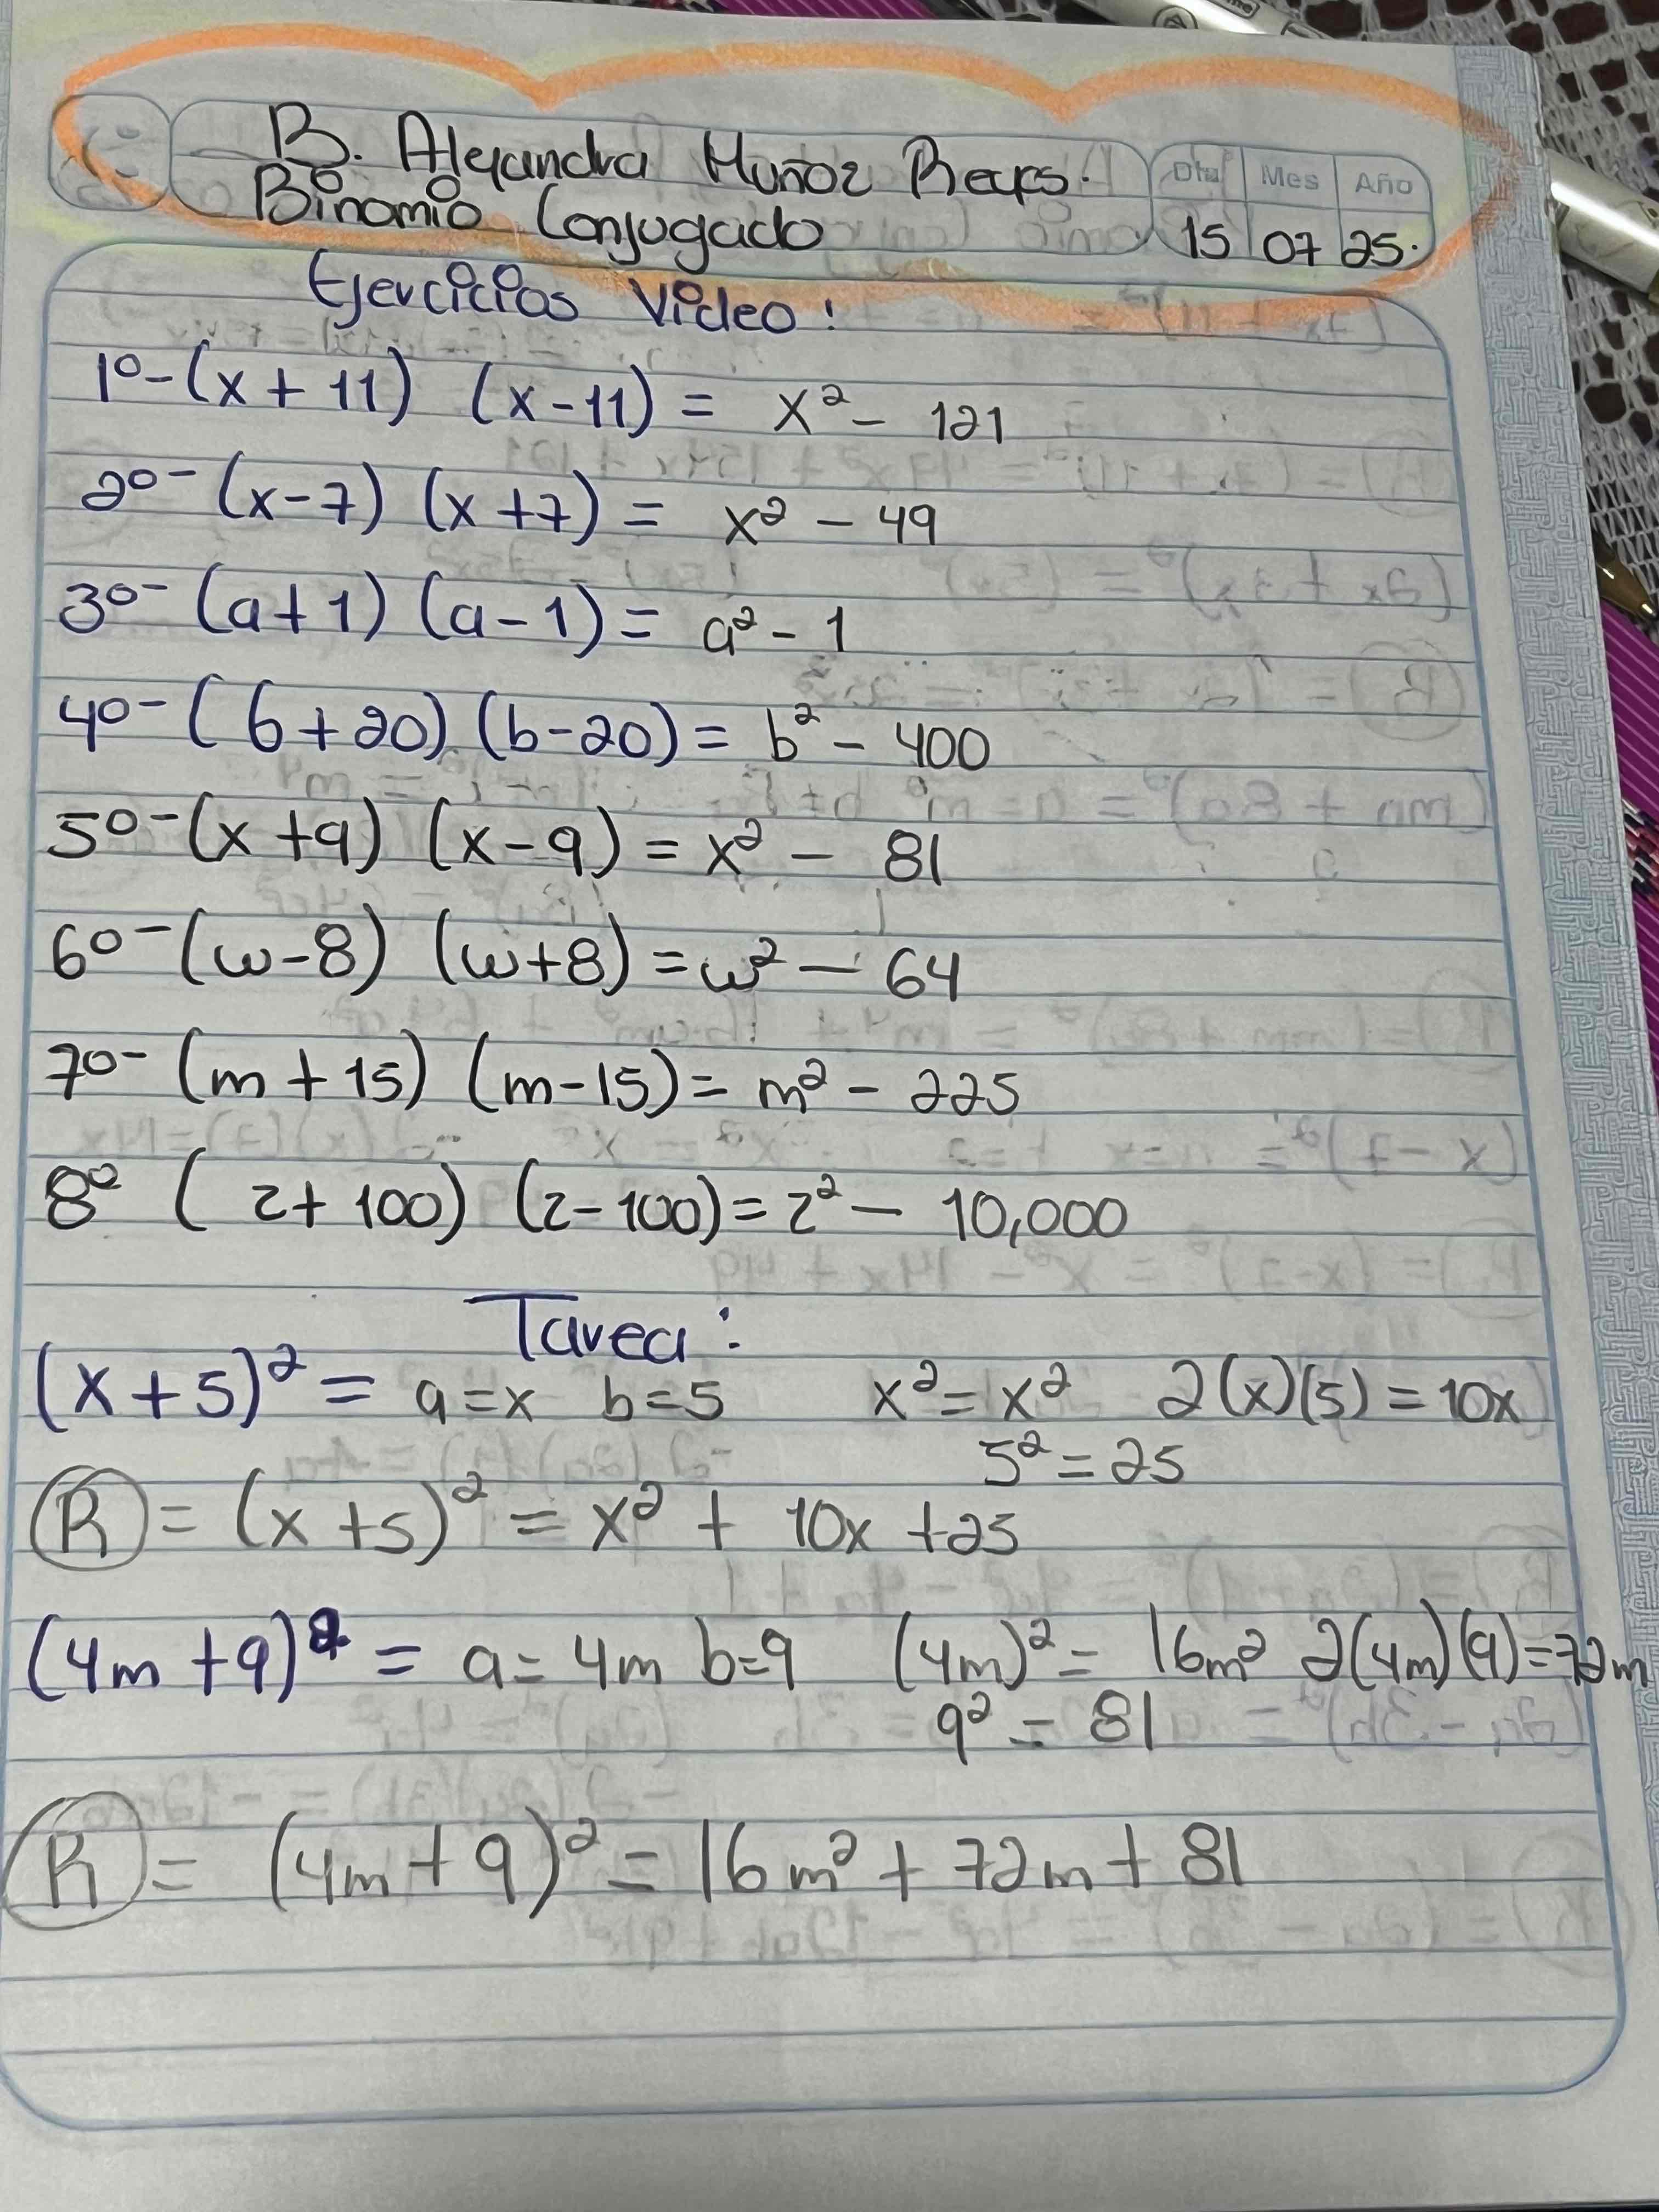 B. Alejandra Muñoz
Binomio Conjugado
Día Mes Año
15 07 25.
Ejercicios Video:
1º-(x + 11) (x-11) = x² - 121
2º-(x-7) (x+7) = x² - 49
3º-(a+1) (a-1) = a² - 1
4º-(b+20) (b-20) = b² - 400
5º-(x+9) (x-9) = x² - 81
6º-(w-8) (w+8) = w² - 64
7º-(m+15) (m-15) = m² - 225
8º (z+100) (z-100) = z² - 10,000
Tarea:
(x+5)² = a=x b=5 x²=x² 2(x)(5)=10x
5²=25
R = (x+5)² = x² + 10x +25
(4m+9)² = a=4m b=9 (4m)²=16m² 2(4m)(9)=72m
9² = 81
R = (4m+9)² = 16m² + 72m + 81